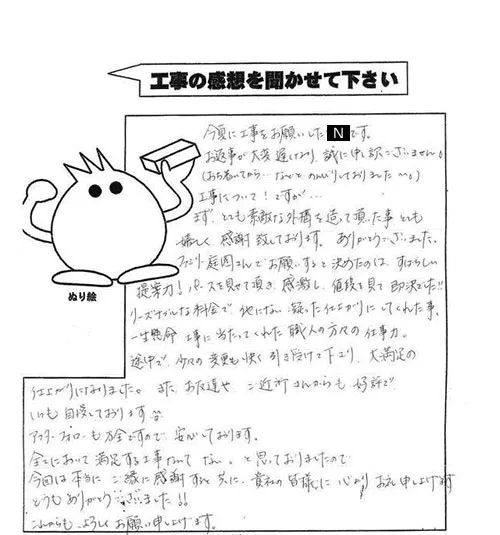 工事の感想を聞かせて下さい
今夏に工事をお願いしたNです。
お返事が大変遅くなり、誠に申し訳ございません。
(お待ちいただいてから… などと のんびりしておりました…。)
工事について!ですが…
まず、とても素敵な外構を造って頂いた事とても
嬉しく感謝致しております。ありがとうございました。
ファミリー庭園さんでお願いすると決めたのは、すばらしい
提案力!パースを見せて頂き、感激し、値段を見て即決でした!!
リーズナブルな料金で 他にない 凝った仕上がりにしてくれた事。
一生懸命 工事に当たってくれた 職人の方々の仕事力。
途中で、少々の変更も快く引き受けて下さり、大満足の
ぬり絵
仕上がりになりました。また、お友達や ご近所さんからも 好評で
いつも自慢しております
アフターフォローも万全ですので、安心しております。
全てにおいて 満足する工事なんて ない。と思っておりましたので
今回は本当に ご縁に感謝すると共に、貴社の皆様に 心より お礼申し上げます
どうもありがとうございました!!
これからも よろしくお願い申し上げます。